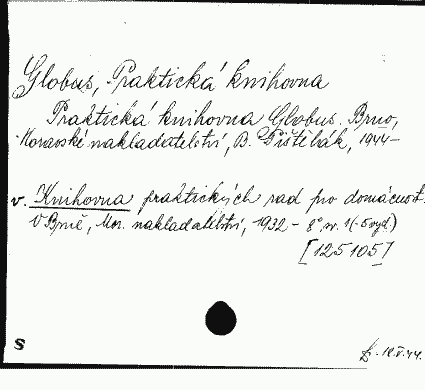 Globus, Praktická knihovna
Praktická knihovna Globus. Brno,
Moravské nakladatelství, B. Pištělák, 1944-
v. Knihovna praktických rad pro domácnost.
V Brně, Mor. nakladatelství, 1932 - 8° n. 1(-5 vyd.)
[125105]
S
18.V.44.